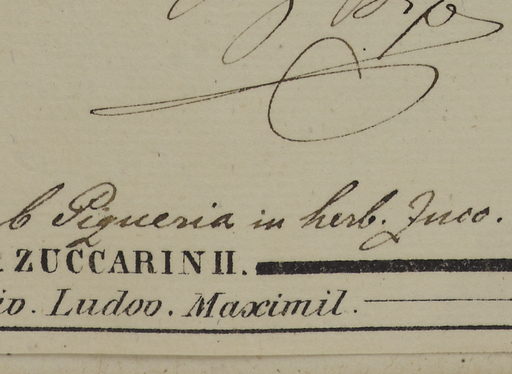 b Piqueria in herb. Zucc.
ZUCCARINII.
io. Ludov. Maximil.